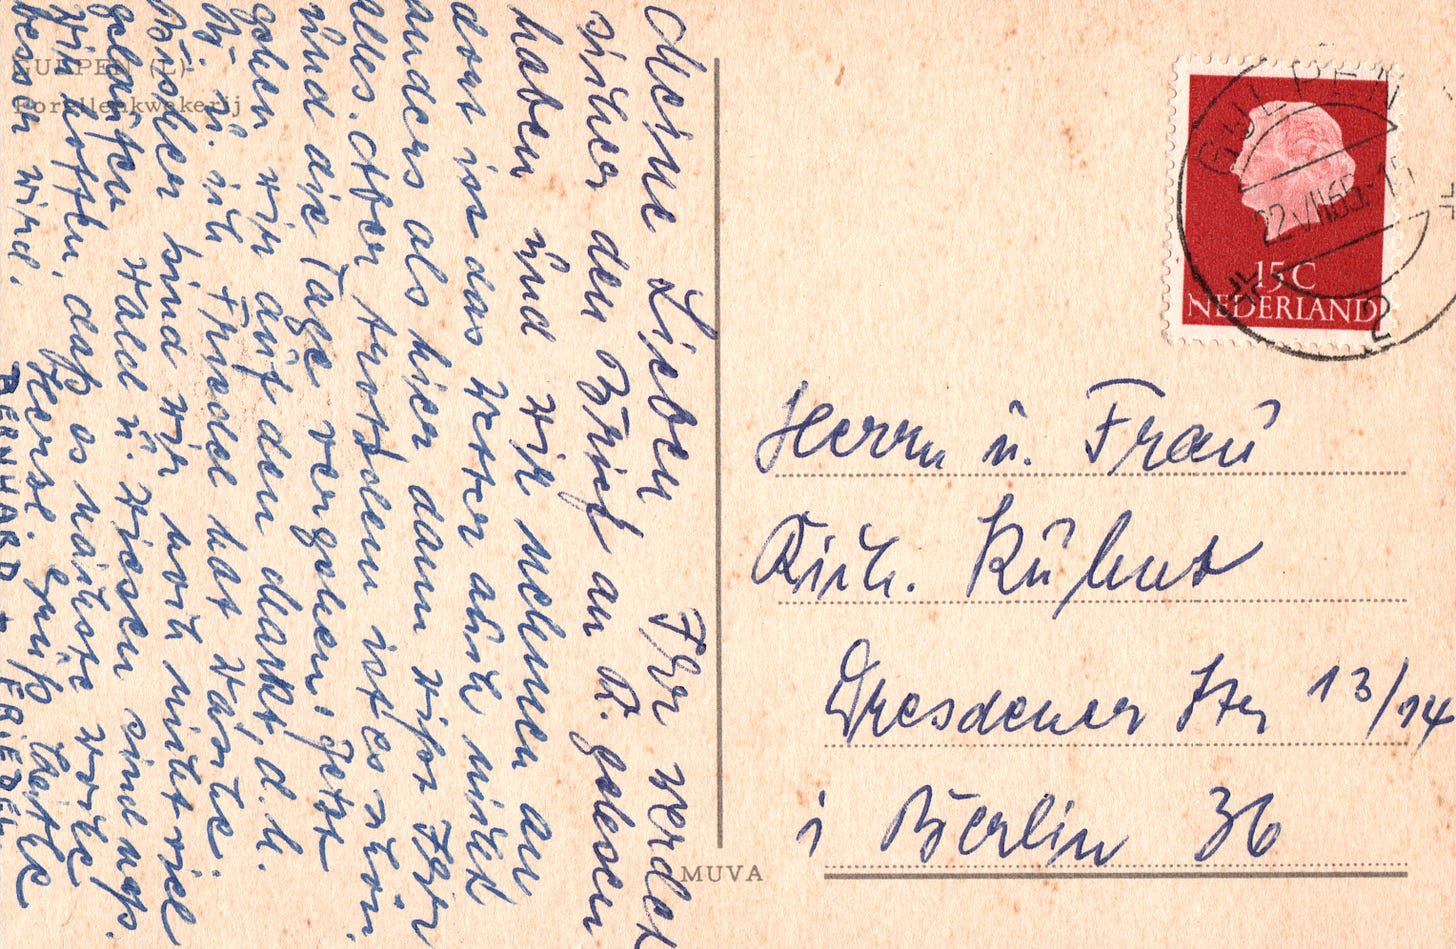 GULPEN (L)
Forellenkwekerij
Meine Lieben Ihr werdet
sicher den Brief an R. gelesen
haben und wir nehmen an
dort ist das Wetter auch nicht
anders als hier dann wißt Ihr
alles. Aber trotzdem ist es schön
und die Tage vergehen! Jetzt
gehen wir auf den Markt, d.h.
B. u. ich Friedel hat Wäsche.
Bisher sind wir noch nicht viel
gelaufen Wald u. Wiesen sind naß.
Wir hoffen, daß es nächste Woche
besser wird. Herzl. Grüße Käthe
BERNHARD + FRIEDEL
MUVA
GULPEN
22 VII 15
15 C
NEDERLAND
2
Herrn u. Frau
Rich. Kühnt
Dresdener Str 13/14
i Berlin 36